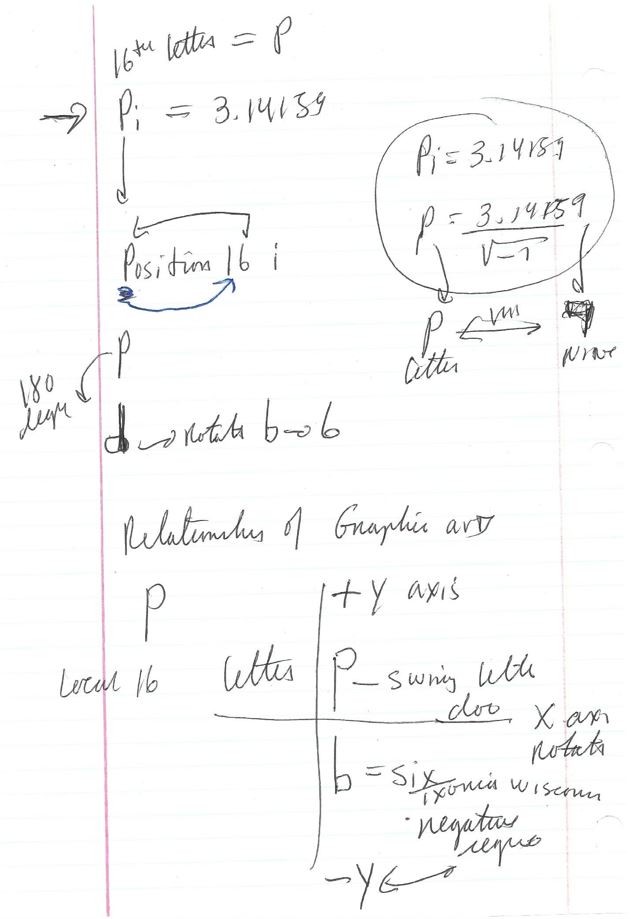 16th letter = P
Pi = 3.14159
Position 16 i
P
180
d → rotate b → 6
Pi = 3.14159
P = 3.14159 / √-1
P
letter
Relationships of Graphic art
P
Local 16
letter
+ Y axis
P - swing
X axis
rotate
b = six
ixonia wisconsin
negative
-Y